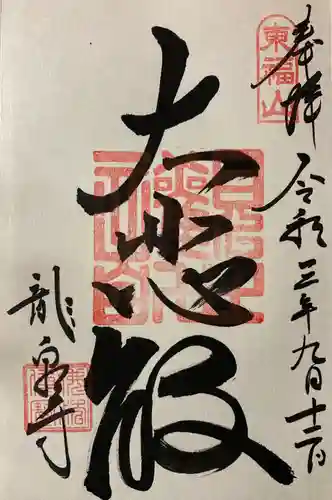 奉拝
東福山
令和三年九月十二日
大悲殿
龍泉寺